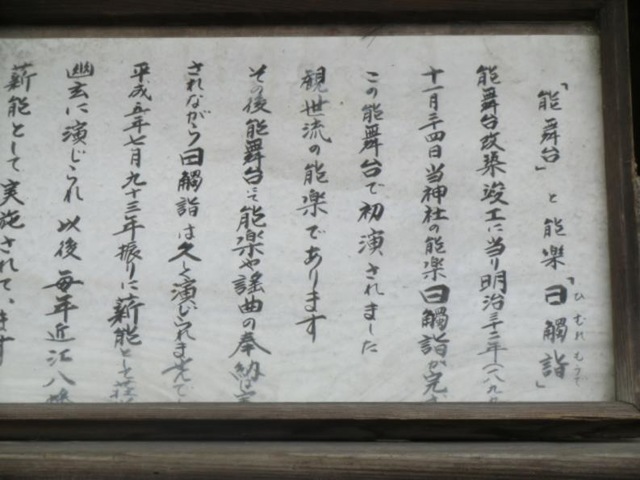 「能舞台」と能楽「日觸詣」
ひむれもうで
能舞台改築竣工に当り明治三十二年(一八九
十一月二十四日当神社の能楽日觸詣が完
この能舞台で初演されました
観世流の能楽であります
その後能舞台にて能楽や謡曲の奉納は
されながら日觸詣は久しく演じられませんで
平成五年七月九十三年振りに薪能として荘
幽玄に演じられ以後毎年近江八幡
薪能として実施されています